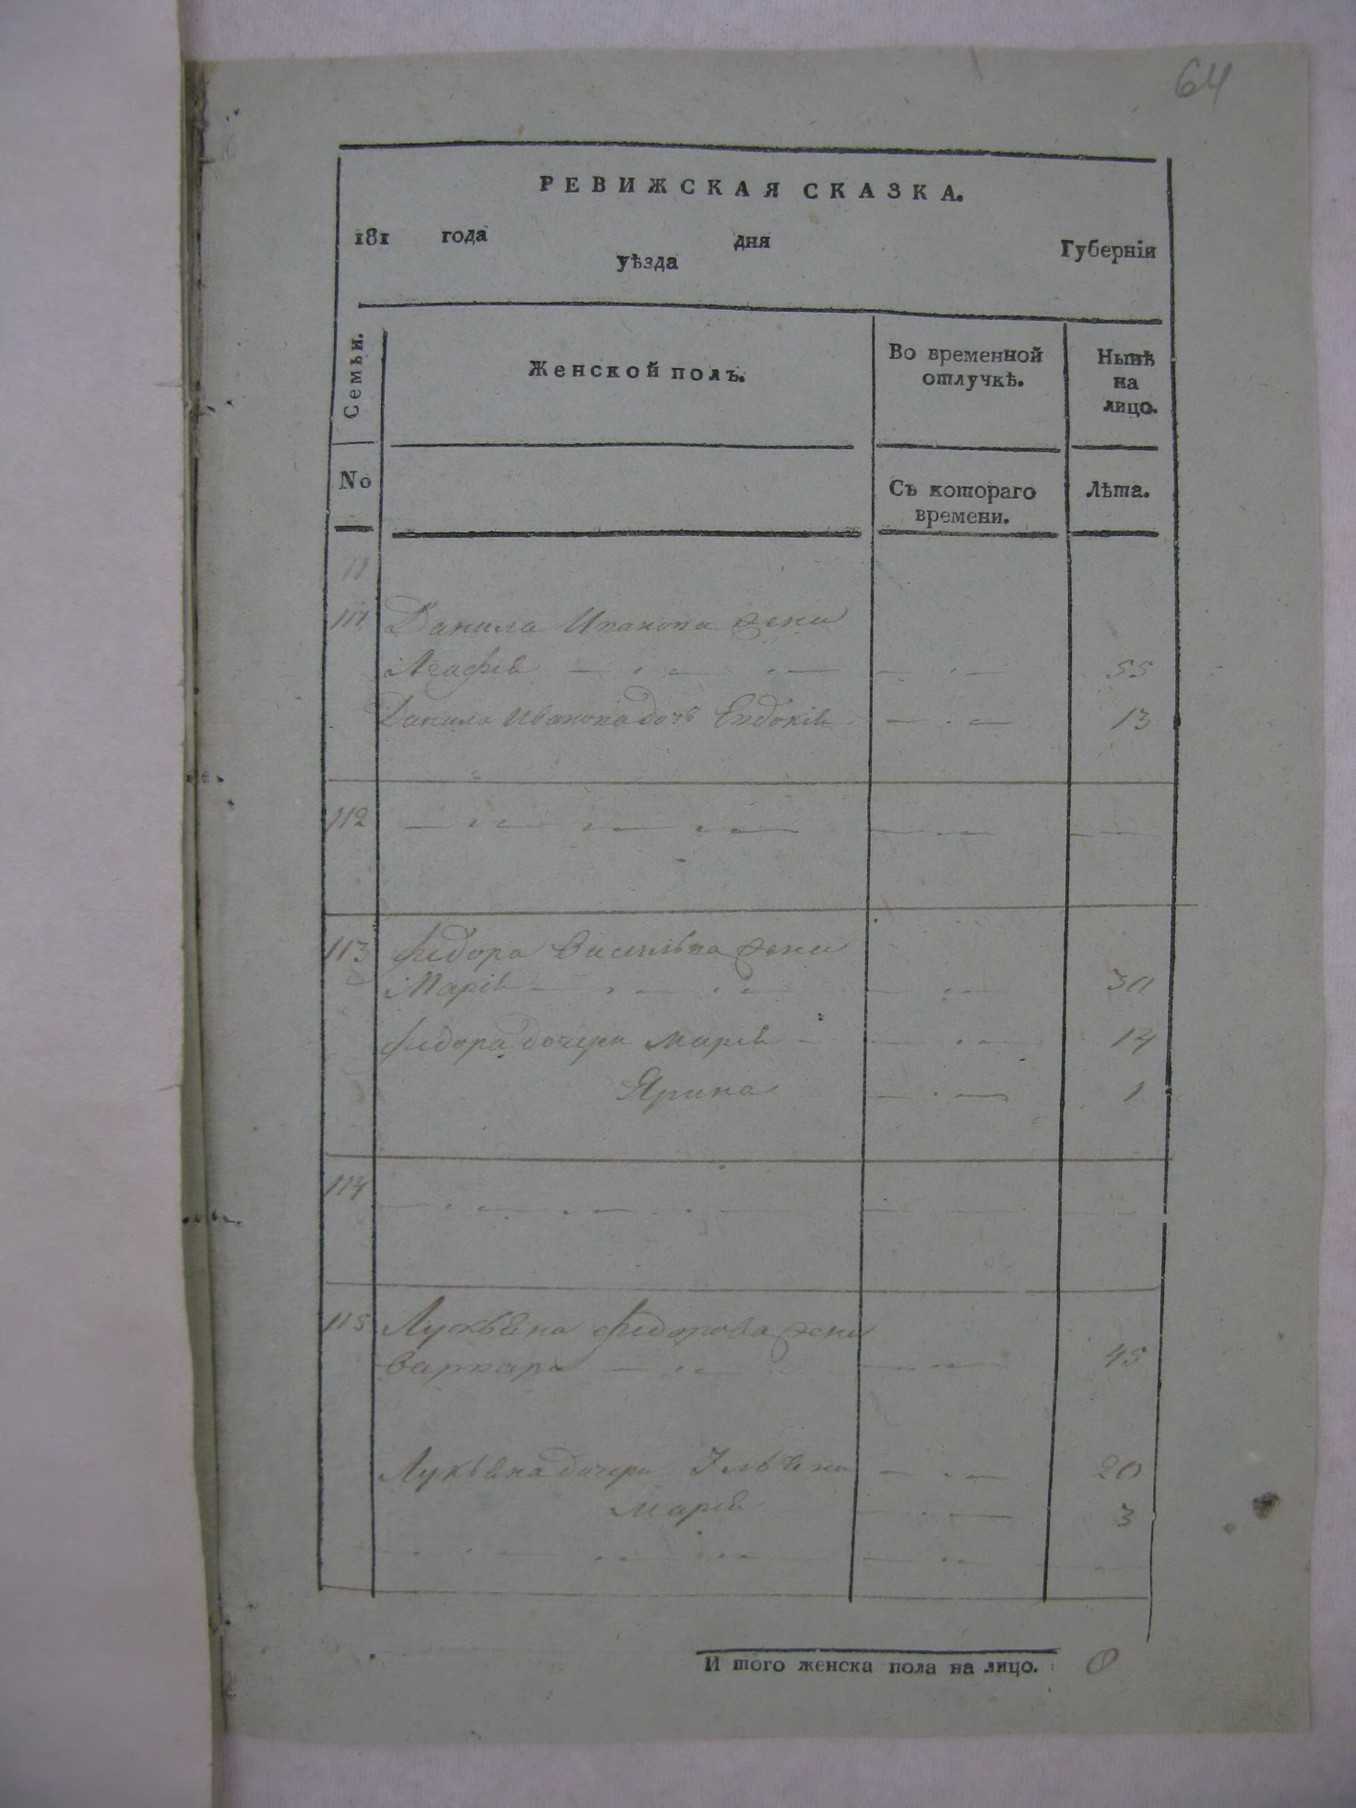 64
РЕВИЖСКАЯ СКАЗКА.
181 года дня Губерніи
уѣзда
Семьи.
Женской полъ.
Во временной отлучкѣ.
Нынѣ на лицо.
No
Съ котораго времени.
Лѣта.
11
111 Данила Иванова жена
Агафія 55
Данила Иванова дочь Евдокія 13
112
113 Федора Васильва жена
Марія 30
Федора дочери Марія 14
Ярина 1
114
115 Лукьяна Федорова жена
Варвара 45
Лукьяна дочери Ульяна 20
Марія 3
И того женска пола на лицо. 8